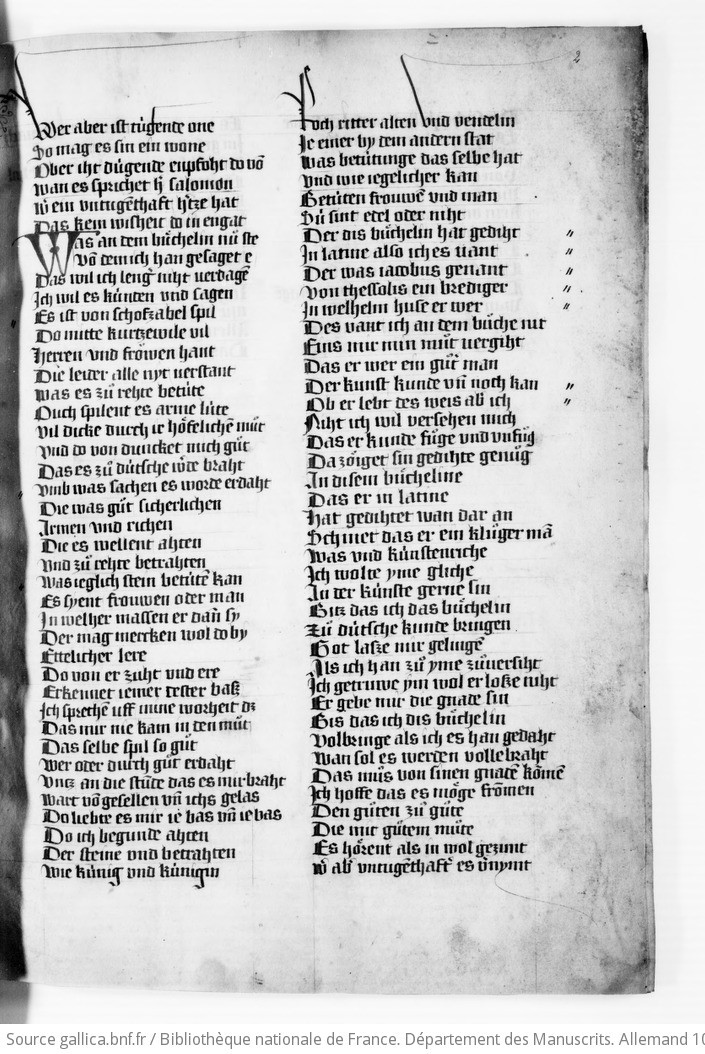 2
Wer aber ist tugende one
Do mag es sin ein wone
Ober iht dügende enpfoht do võ
Wan es sprichet h̾ salomon
W̾ ein vntugẽthaft h̾tze hat
Das kein wisheit do in engat
Was an dem bůchelin nü ste
Võ dem ich han gesaget e
Das wil ich leng̾ niht verdagẽ
Ich wil es künten vnd sagen
Es ist von schofzabel spil
Do mitte kurtzewile vil
Herren vnd fröwen hant
Die leider alle nyt verstant
Was es zů rehte betüte
Ouch spilent es arme lüte
Vil dicke durch ir höfelichẽ můt
Vnd do von duncket mich gůt
Das es zů dütsche w̾de braht
Vmb was sachen es worde erdaht
Die was gůt sicherlichen
Armen vnd richen
Die es wellent ahten
Vnd zů rehte betrahten
Was ieglich stein betütẽ kan
Es syent frouwen oder man
In welher massen er dañ sy
Der mag mercken wol do by
Ettelicher lere
Do von er zuht vnd ere
Erkennet iemer dester baß
Ich sprechẽ uff mine worheit dz
Das mir nie kam in den můt
Das selbe spil so gůt
Wer oder durch gůt erdaht
Vntz an die stůde das es mir braht
Wart võ gesellen vñ ichs gelas
Do liebte es mir ie bas vñ ie bas
Do ich begunde ahten
Der steine vnd betrahten
Wie künig vnd künigin
Roch ritter alten vnd vendelin
Ie einer by dem andern stat
Was betütunge das selbe hat
Vnd wie iegelicher kan
Betüten frouwẽ vnd man
Sü sint edel oder niht
Der dis bůchelin hat gediht
In latine also ich es vant
Der was iacobus genant
Von thessolis ein brediger
In welhelm huse er wer
Des vant ich an dem bůche nit
Eins mir min můt vergiht
Das er wer ein gůt̾ man
Der kunst kunde vñ noch kan
Ob er lebt des weis ab̾ ich
Niht ich wil versehen mich
Das er kunde fůge vnd vnfůg
Da zöiget sin gedihte genůg
In disem bůcheline
Das er in latine
Hat gedihtet wan dar an
Schinet das er ein klůger mã
Was vnd künstenriche
Ich wolte yme gliche
An der künste gerne sin
Bitz das ich das bůchelin
Zů dütsche kunde bringen
Got lasze mir gelingẽ
Als ich han zů yme zůuersiht
Ich getruwe ym wol er losze niht
Er gebe mir die gnade sin
Bis das ich dis bůchelin
Volbringe als ich es han gedaht
Wan sol es werden vollebraht
Das můs von sinen gnadẽ kõmẽ
Ich hoffe das es möge frömen
Den gůten zů gůte
Die mit gůtem můte
Es hörent als in wol gezimt
W̾ ab̾ vntugẽthaft̾ es v̾nymt
Source gallica.bnf.fr / Bibliothèque nationale de France. Département des Manuscrits. Allemand 10